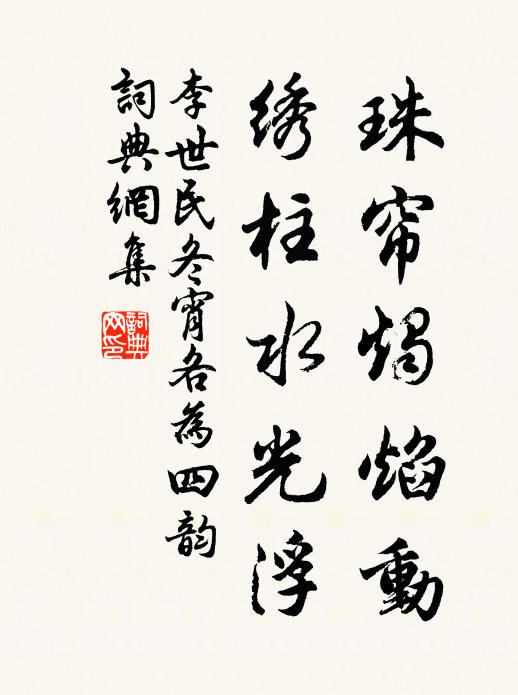 珠帘燭焰動
绣柱水光浮
李世民冬宵各為四韵
詞典網集
詞典網印